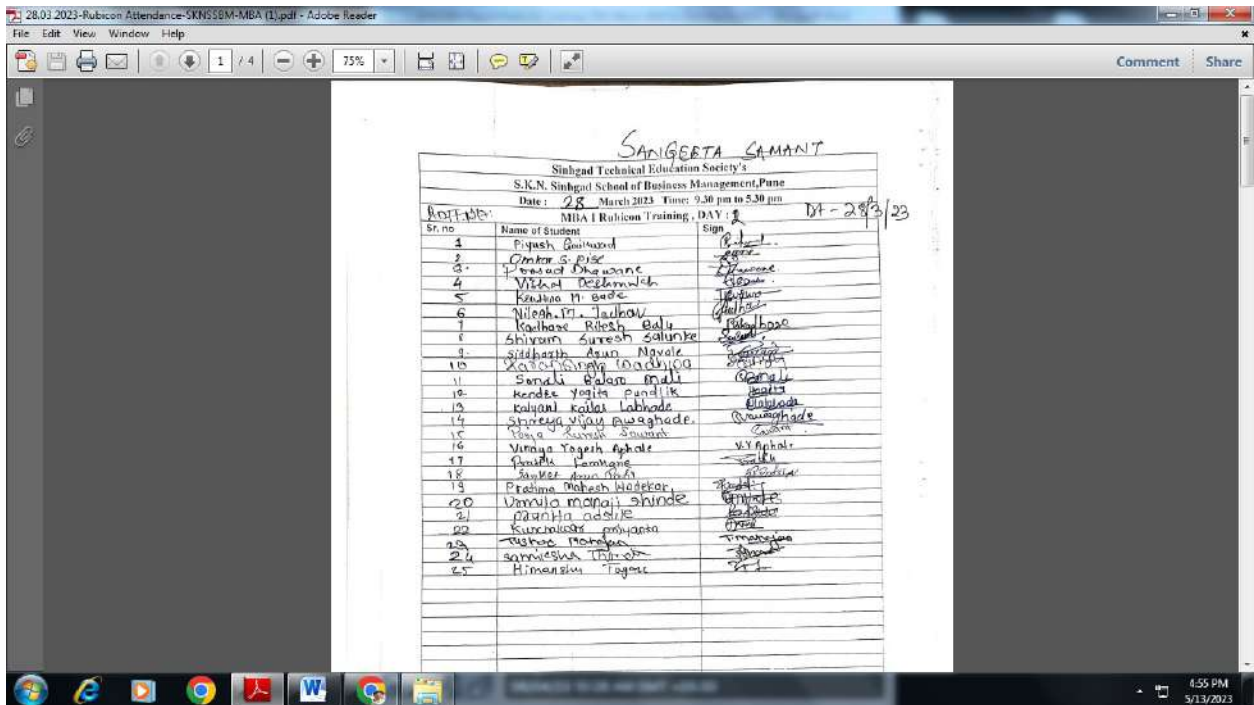 28.03.2023-Rubicon Attendance-SKNSSBM-MBA (1).pdf - Adobe Reader
File Edit View Window Help
1 / 4 75% Comment Share
SANGEETA SAMANT
Sinhgad Technical Education Society's
S.K.N. Sinhgad School of Business Management,Pune
Date : 28 March 2023 Time: 9.30 pm to 5.30 pm
MBA I Rubicon Training , DAY : Dt - 28/3/23
Sr. no Name of Student Sign
1 Piyush Gaikwad
2 Omkar S. Pise
3. Prasad Dhawane
4 Vishal Deshmukh
5 M. Bade
6 Nilesh. M. Jadhav
7 Kadhare Ritesh Balu
8 Shivam Suresh Salunke
9. Siddharth Arun Navale
10 Karansingh Wadhwa
11 Sonali Balaso Mali
12 Kendre Yogita Pundlik
13 Kalyani Kailas Labhade
14 Shreya Vijay Awaghade.
15 Suresh Sawant
16 Vinaya Yogesh Aphale V.Y Aphale
17
18 Sanket Arun
19 Pratima Mahesh Hodekar
20 Urmila manaji shinde
21
22 priyanka
23 Tushar Mahajan Tmahajan
24 samiksha
25 Himanshu Tagare
4:55 PM
5/13/2023